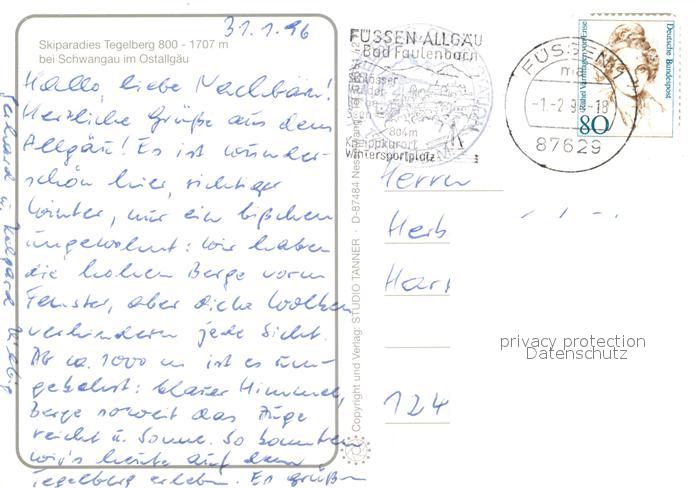 31.1.96
Skiparadies Tegelberg 800 - 1707 m
bei Schwangau im Ostallgäu
Hallo, liebe Nachbarn!
Herzliche Grüße aus dem
Allgäu! Es ist wunder-
schön hier, richtiger
Winter, nur ein bißchen
ungewohnt: wir haben
die hohen Berge vorm
Fenster, aber dicke Wolken
verhindern jede Sicht.
Ab ca. 1000 m ist es um-
gekehrt: blauer Himmel,
Berge soweit das Auge
reicht u. Sonne. So konnten
wir's heute auf dem
Tegelberg erleben. Es grüßen
Gerhard u.
© Copyright und Verlag: STUDIO TANNER · D-87484 Nes
FÜSSEN-ALLGÄU
Bad Faulenbach
Schlösser
Wälder
Seen
804m
Kneippkurort
Wintersportplatz
FÜSSEN 1
-1.-2.9 -18
87629
Deutsche Bundespost
80
Herrn
Herb
Har
124
privacy protection
Datenschutz